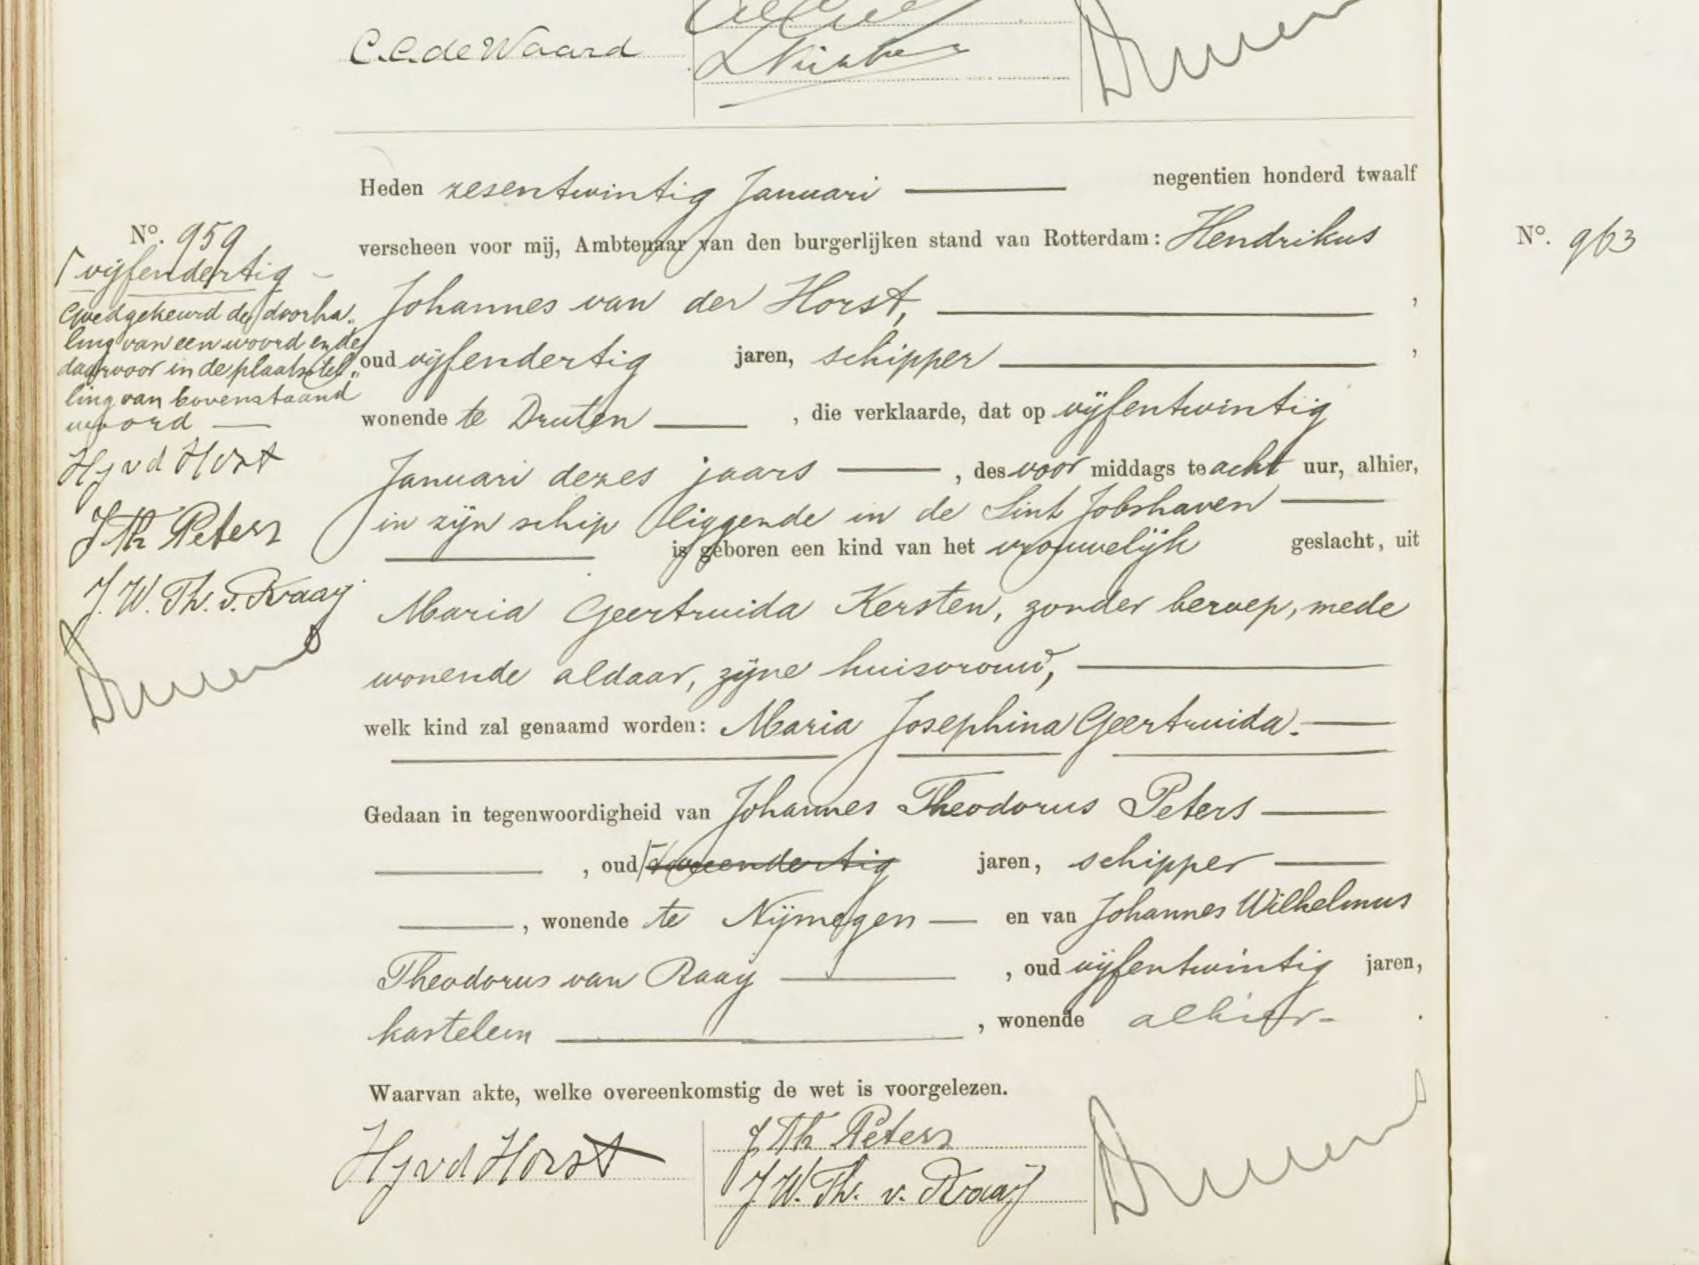 C.C. de Waard
Heden zesentwintig Januari negentien honderd twaalf
verscheen voor mij, Ambtenaar van den burgerlijken stand van Rotterdam: Hendrikus
Johannes van der Horst, ,
oud vijfendertig jaren, schipper ,
wonende te Druten , die verklaarde, dat op vijfentwintig
Januari dezes jaars , des voor middags te acht uur, alhier,
in zijn schip liggende in de Sint Jobshaven
is geboren een kind van het vrouwelijk geslacht, uit
Maria Geertruida Kersten, zonder beroep, mede
wonende aldaar, zijne huisvrouw,
welk kind zal genaamd worden: Maria Josephina Geertruida.
Gedaan in tegenwoordigheid van Johannes Theodorus Peters
, oud tweendertig jaren, schipper
, wonende te Nijmegen en van Johannes Wilhelmus
Theodorus van Raay , oud vijfentwintig jaren,
kastelein , wonende alhier.
Waarvan akte, welke overeenkomstig de wet is voorgelezen.
H J v d Horst
J Th Peters
J. W. Th. v. Raaij
No. 959
vijfendertig
Goedgekeurd de doorha-
ling van een woord en de
daarvoor in de plaatsstel-
ling van bovenstaand
woord
H J v d Horst
J Th Peters
J. W. Th. v. Raaij
No. 963